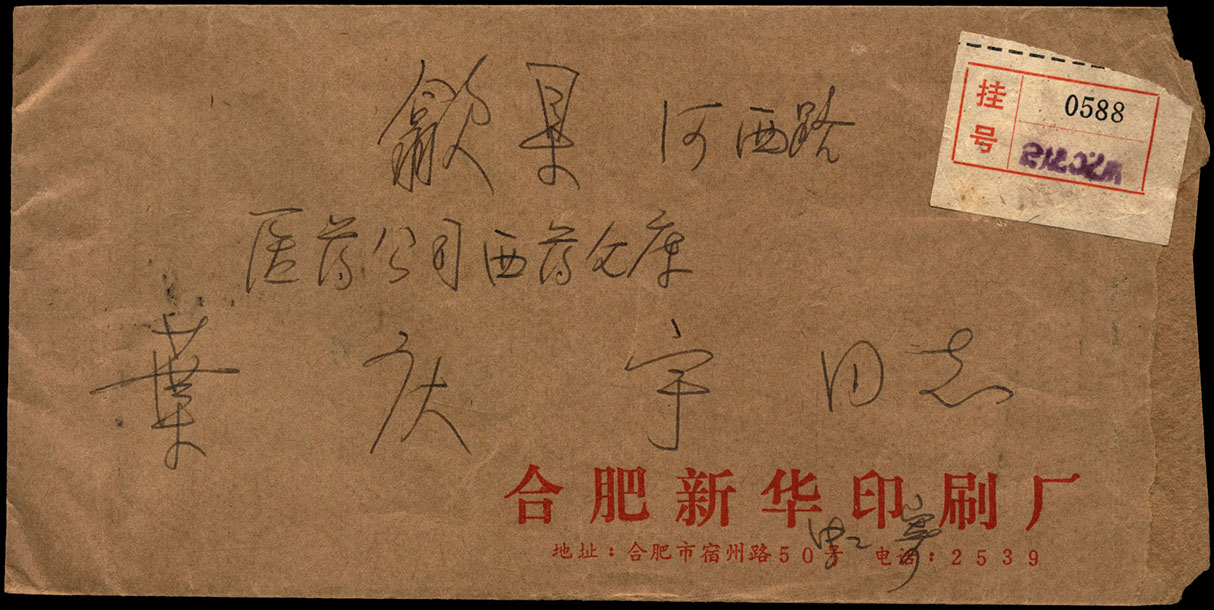 歙县 河西路
医药公司西药仓库
葉庆宇同志
挂号
0588
合肥新华印刷厂
地址：合肥市宿州路50号 电话：2539
寄